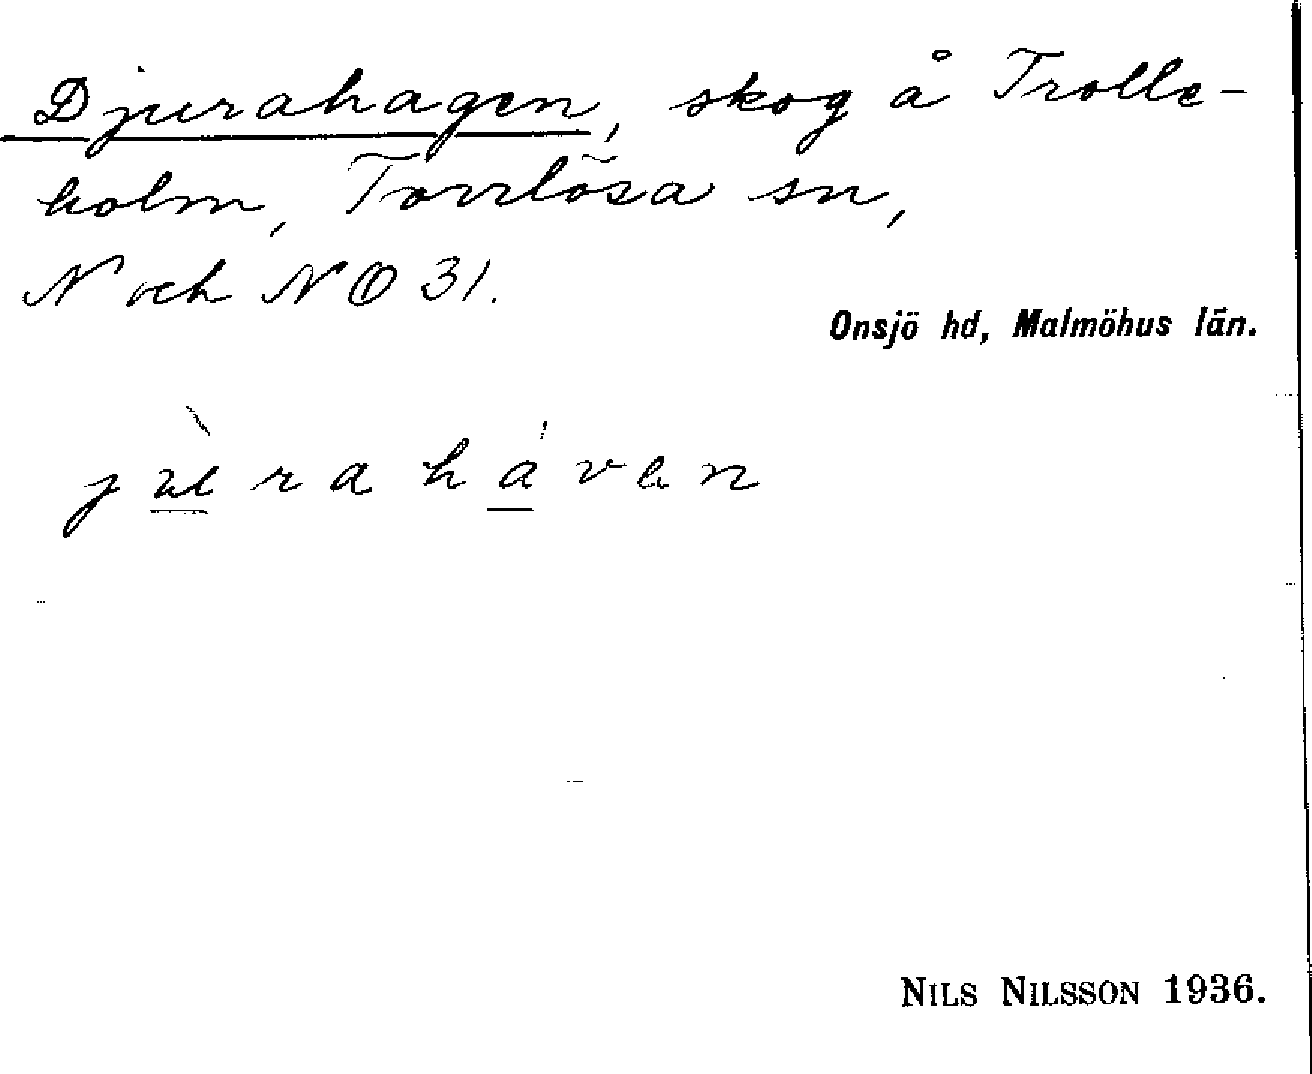 Djurahagen, skog å Trolle-
holm, Torrlösa sn,
N och NO 31.
Onsjö hd, Malmöhus län.
jùraháven
NILS NILSSON 1936.